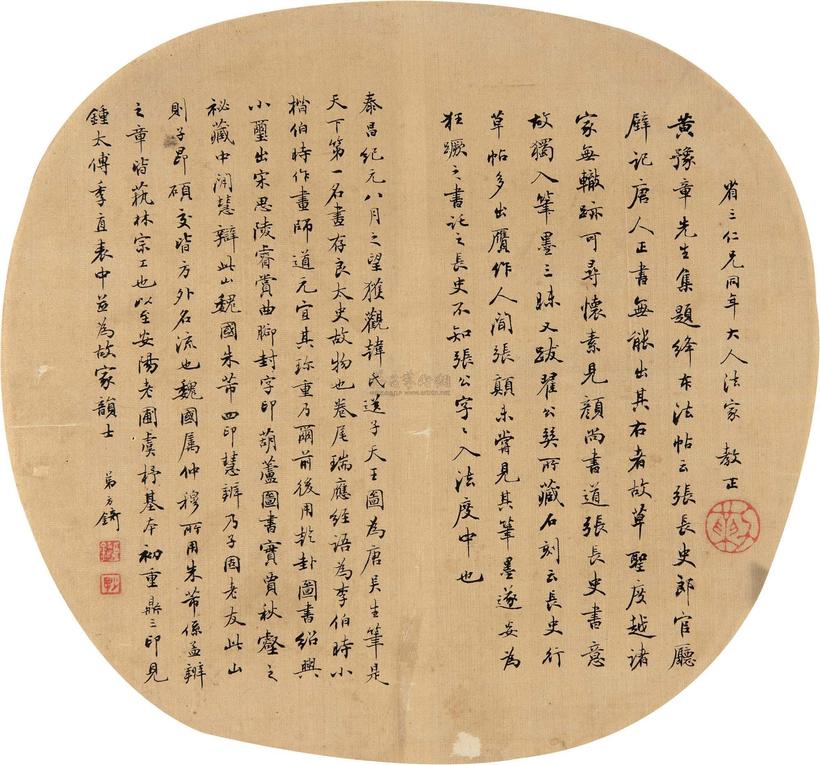 省三仁兄同年大人法家 教正
黄豫章先生集題絳本法帖云張長史郎官廳
壁記唐人正書無能出其右者故草聖度越諸
家無轍跡可尋懷素見顏尚書道張長史書意
故獨入筆墨三昧又跋翟公巽所藏石刻云長史行
草帖多出贗作人間張顛未嘗見其筆墨遂妄為
狂蹶之書託之長史不知張公字〻入法度中也
泰昌紀元八月之望獲觀韓氏送子天王圖為唐吳生筆是
天下第一名畫存良太史故物也卷尾瑞應經語為李伯時小
楷伯時作畫師道元宜其珍重乃爾前後用乾卦圖書紹興
小璽出宋思陵睿賞曲腳封字印葫蘆圖書實賈秋壑之
祕藏中間慧辯此山魏國朱芾四印慧辯乃子固老友此山
則子昂碩交皆方外名流也魏國属仲穆所用朱芾係孟辯
之章皆蓺林宗工也以至安陽老圃虞杼基本初重鼎三印見
鍾太傅季直表中並為故家韻士 弟方錡